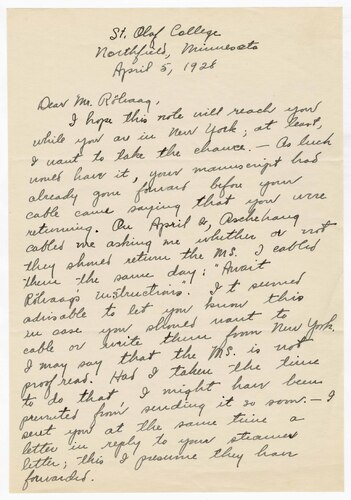 St. Olaf College
Northfield, Minnesota
April 5, 1928
Dear Mr. Rölvaag,
I hope this note will reach you
while you are in New York; at least,
I want to take the chance. — As luck
would have it, your manuscript had
already gone forward before your
cable came saying that you were
returning. On April 2, Aschehoug
cabled me asking me whether or not
they should return the MS. I cabled
them the same day: "Await
Rölvaags instructions." It seemed
advisable to let you know this
in case you should want to
cable or write them from New York.
I may say that the MS. is not
proof read. Had I taken the time
to do that I might have been
prevented from sending it so soon. — I
sent you at the same time a
letter in reply to your steamer
letter; this I presume they have
forwarded.